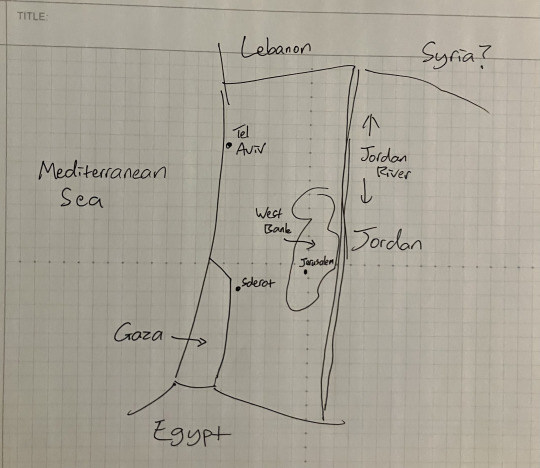 TITLE:
Lebanon
Syria?
Tel
Aviv
Jordan
River
Mediterranean
Sea
West
Bank
Jordan
Jerusalem
Sderot
Gaza
Egypt